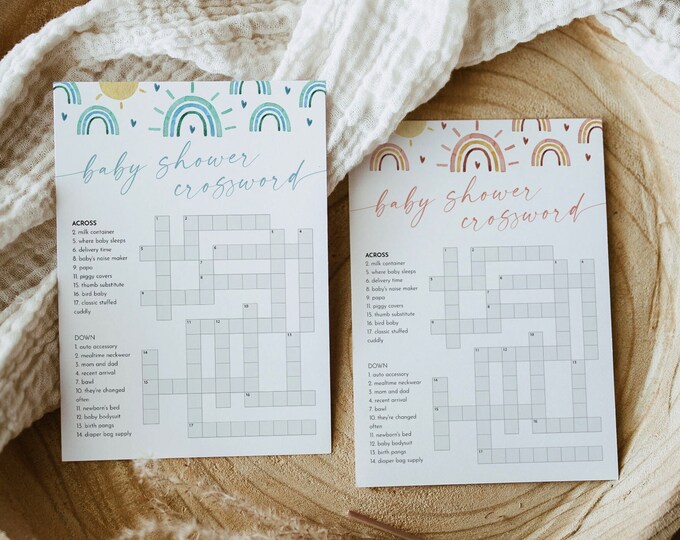 baby shower
crossword
ACROSS
2. milk container
5. where baby sleeps
6. delivery time
8. baby's noise maker
9. papa
11. piggy covers
15. thumb substitute
16. bird baby
17. classic stuffed
cuddly
DOWN
1. auto accessory
2. mealtime neckwear
3. mom and dad
4. recent arrival
7. bawl
10. they're changed
often
11. newborn's bed
12. baby bodysuit
13. birth pangs
14. diaper bag supply
baby shower
crossword
ACROSS
2. milk container
5. where baby sleeps
6. delivery time
8. baby's noise maker
9. papa
11. piggy covers
15. thumb substitute
16. bird baby
17. classic stuffed
cuddly
DOWN
1. auto accessory
2. mealtime neckwear
3. mom and dad
4. recent arrival
7. bawl
10. they're changed
often
11. newborn's bed
12. baby bodysuit
13. birth pangs
14. diaper bag supply